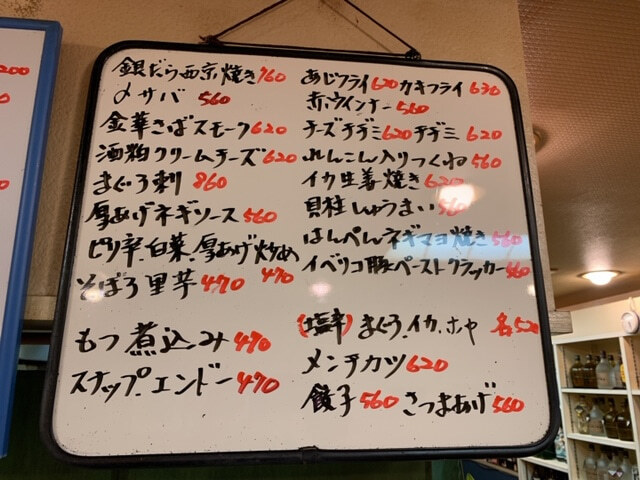 銀だら西京焼き760
〆サバ 560
金華さばスモーク620
酒粕クリームチーズ620
まぐろ刺 860
厚あげネギソース560
ピリ辛.白菜.厚あげ炒め
470
そぼろ里芋470
もつ煮込み470
スナップ.エンドー470
あじフライ620カキフライ630
赤ウインナー560
チーズチヂミ620チヂミ620
れんこん入りつくね560
イカ生姜焼き620
貝柱しゅうまい560
はんぺんネギマヨ焼き560
イベリコ豚ペーストクラッカー560
(塩辛)まぐろ.イカ.ホヤ 各520
メンチカツ620
餃子560さつまあげ560
200